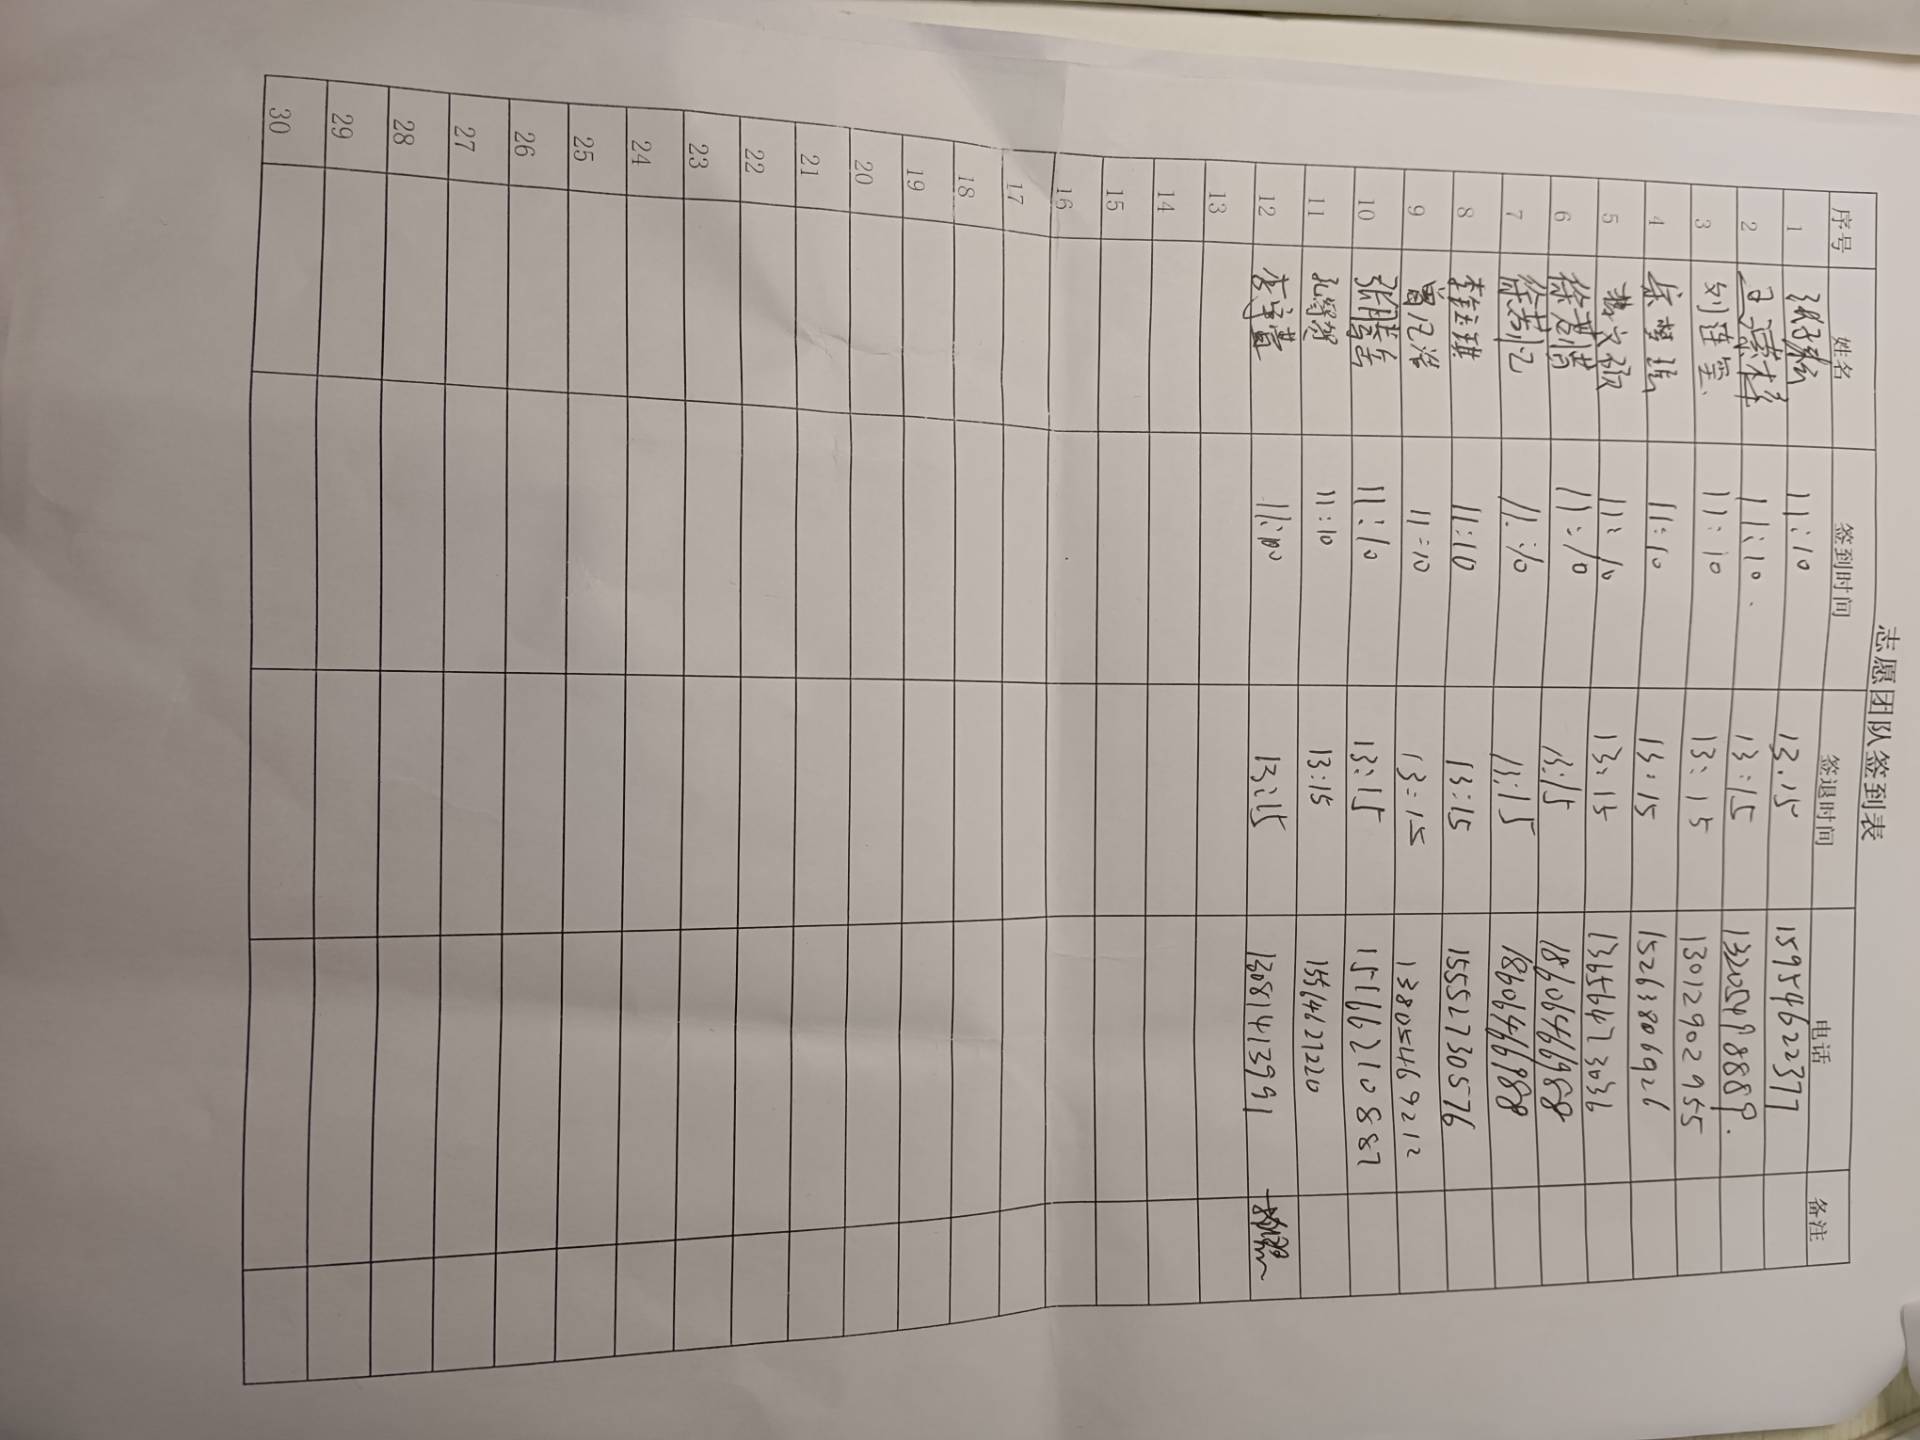 志愿团队签到表
序号 姓名 签到时间 签退时间 电话 备注
1 11:10 13:15 15954622377
2 11:10 13:15
3 刘佳莹 11:10 13:15 13012902955
4 11:10 13:15 15263806926
5 11:10 13:15 13656473036
6 11:10 13:15 18606466988
7 11:10 13:15 18606466988
8 李钰琪 11:10 13:15 15552730576
9 11:10 13:15 13805469212
10 11:10 13:15 15166210887
11 11:10 13:15 15564627220
12 13:15 13081413991
13
14
15
16
17
18
19
20
21
22
23
24
25
26
27
28
29
30